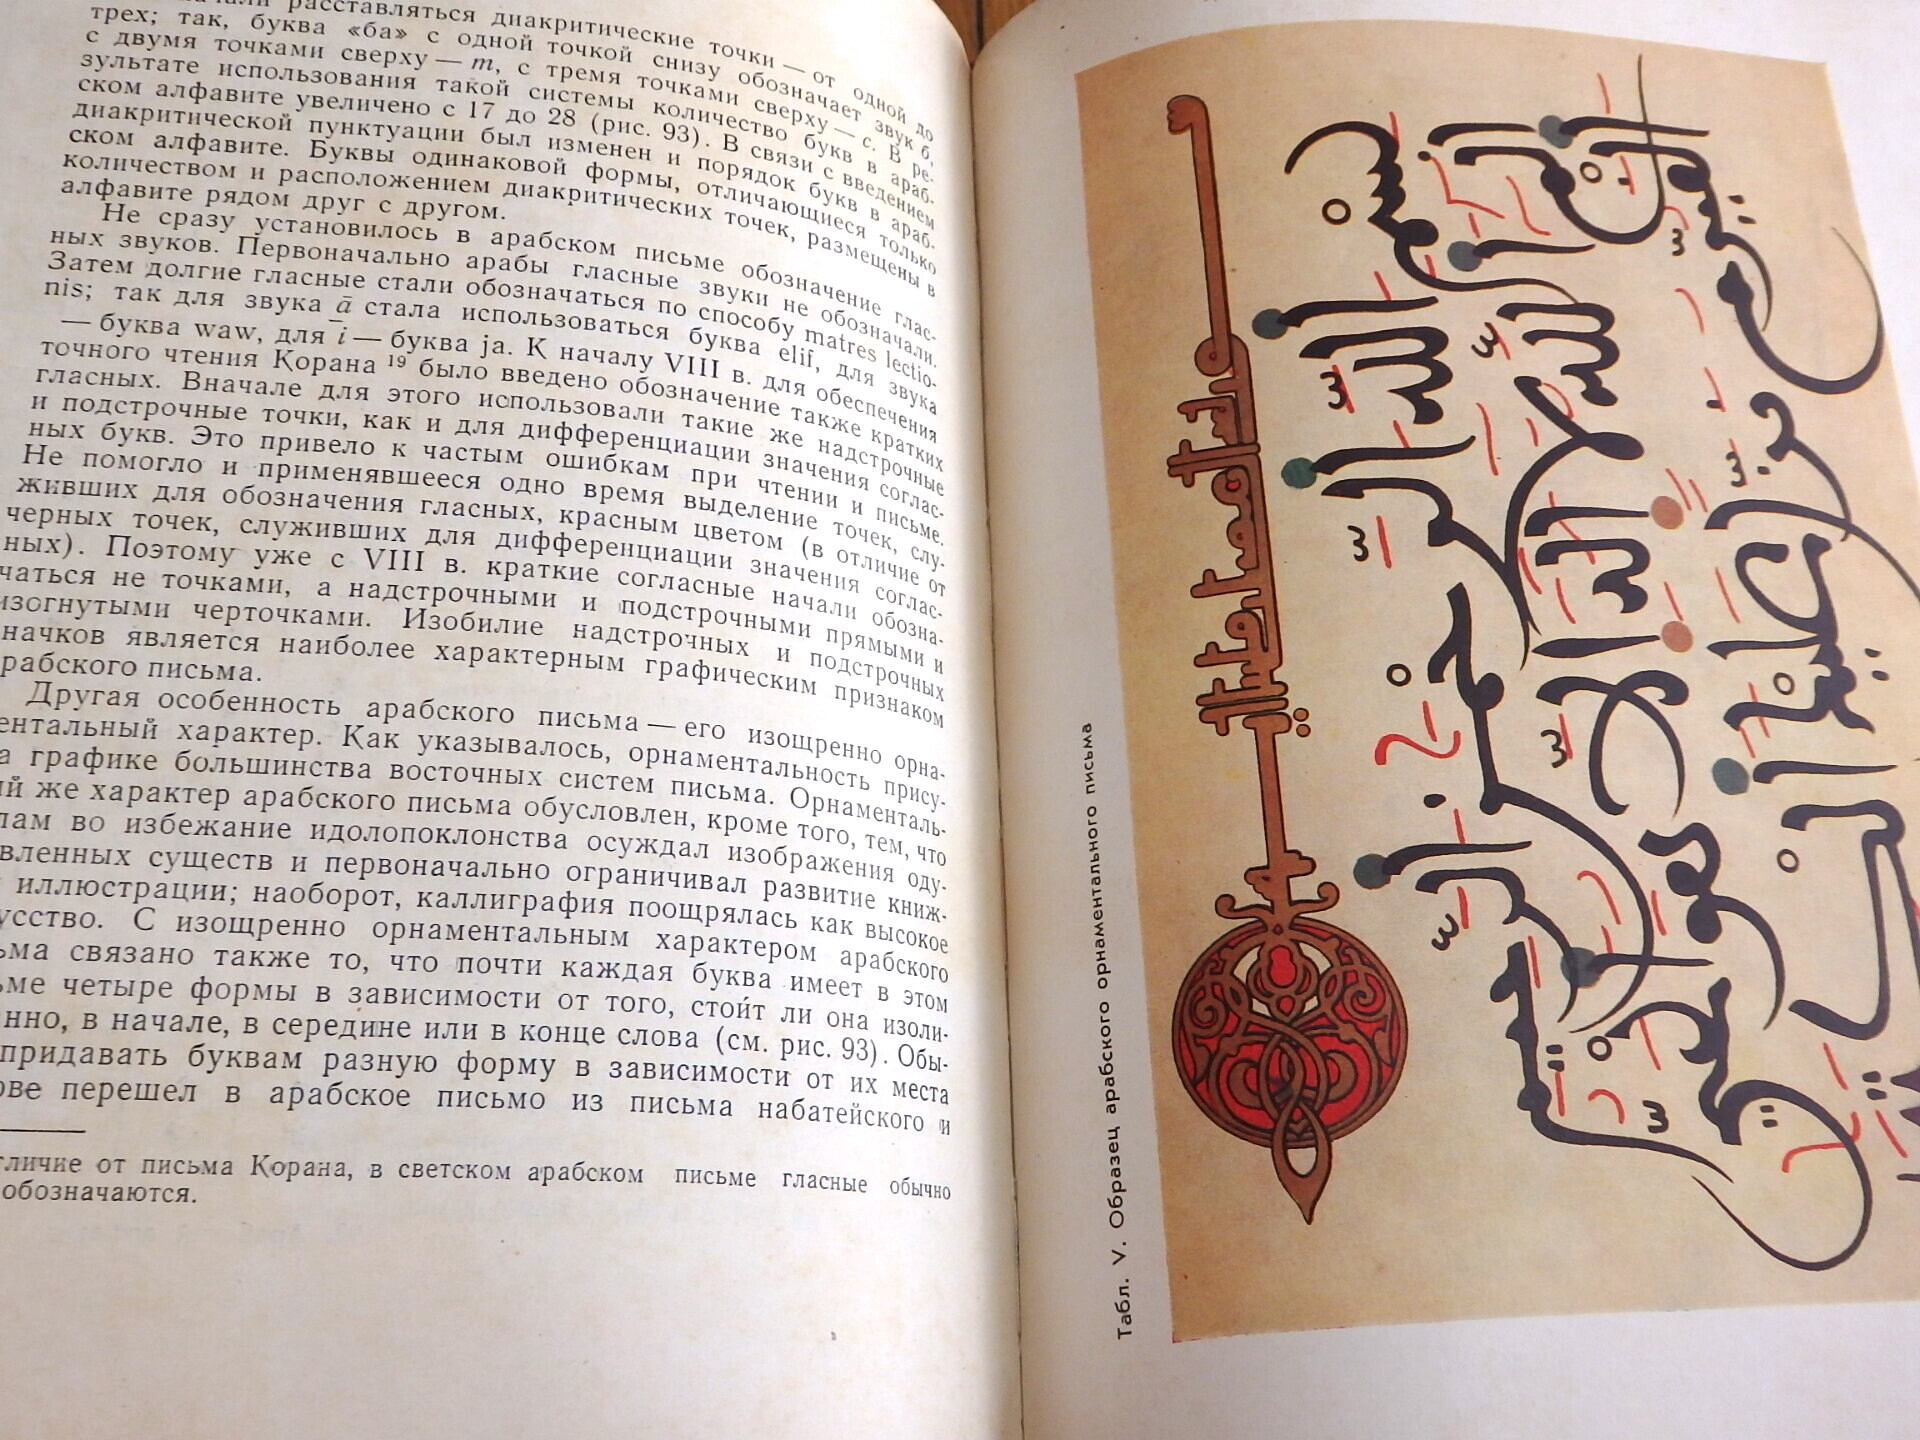 расставляться диакритические точки — от одной до
трех; так, буква «ба» с одной точкой снизу обозначает звук б,
с двумя точками сверху — т, с тремя точками сверху — с. В ре-
зультате использования такой системы количество букв в араб-
ском алфавите увеличено с 17 до 28 (рис. 93). В связи с введением
диакритической пунктуации был изменен и порядок букв в араб-
ском алфавите. Буквы одинаковой формы, отличающиеся только
количеством и расположением диакритических точек, размещены в
алфавите рядом друг с другом.
Не сразу установилось в арабском письме обозначение глас-
ных звуков. Первоначально арабы гласные звуки не обозначали.
Затем долгие гласные стали обозначаться по способу matres lectio-
nis; так для звука ā стала использоваться буква elif, для звука
— буква waw, для ī — буква ja. К началу VIII в. для обеспечения
точного чтения Корана 19 было введено обозначение также кратких
гласных. Вначале для этого использовали такие же надстрочные
и подстрочные точки, как и для дифференциации значения соглас-
ных букв. Это привело к частым ошибкам при чтении и письме.
Не помогло и применявшееся одно время выделение точек, слу-
живших для обозначения гласных, красным цветом (в отличие от
черных точек, служивших для дифференциации значения соглас-
ных). Поэтому уже с VIII в. краткие согласные начали обозна-
чаться не точками, а надстрочными и подстрочными прямыми и
изогнутыми черточками. Изобилие надстрочных и подстрочных
начков является наиболее характерным графическим признаком
рабского письма.
Другая особенность арабского письма — его изощренно орна-
ментальный характер. Как указывалось, орнаментальность прису-
а графике большинства восточных систем письма. Орнаменталь-
ий же характер арабского письма обусловлен, кроме того, тем, что
лам во избежание идолопоклонства осуждал изображения оду-
вленных существ и первоначально ограничивал развитие книж-
иллюстрации; наоборот, каллиграфия поощрялась как высокое
усство. С изощренно орнаментальным характером арабского
ьма связано также то, что почти каждая буква имеет в этом
ьме четыре формы в зависимости от того, стоит ли она изоли-
нно, в начале, в середине или в конце слова (см. рис. 93). Обы-
придавать буквам разную форму в зависимости от их места
ове перешел в арабское письмо из письма набатейского и
тличие от письма Корана, в светском арабском письме гласные обычно
обозначаются.
Табл. V. Образец арабского орнаментального письма
بسم الله الرحمن الرحيم
الم الله لا إله إلا هو الحي
القيوم